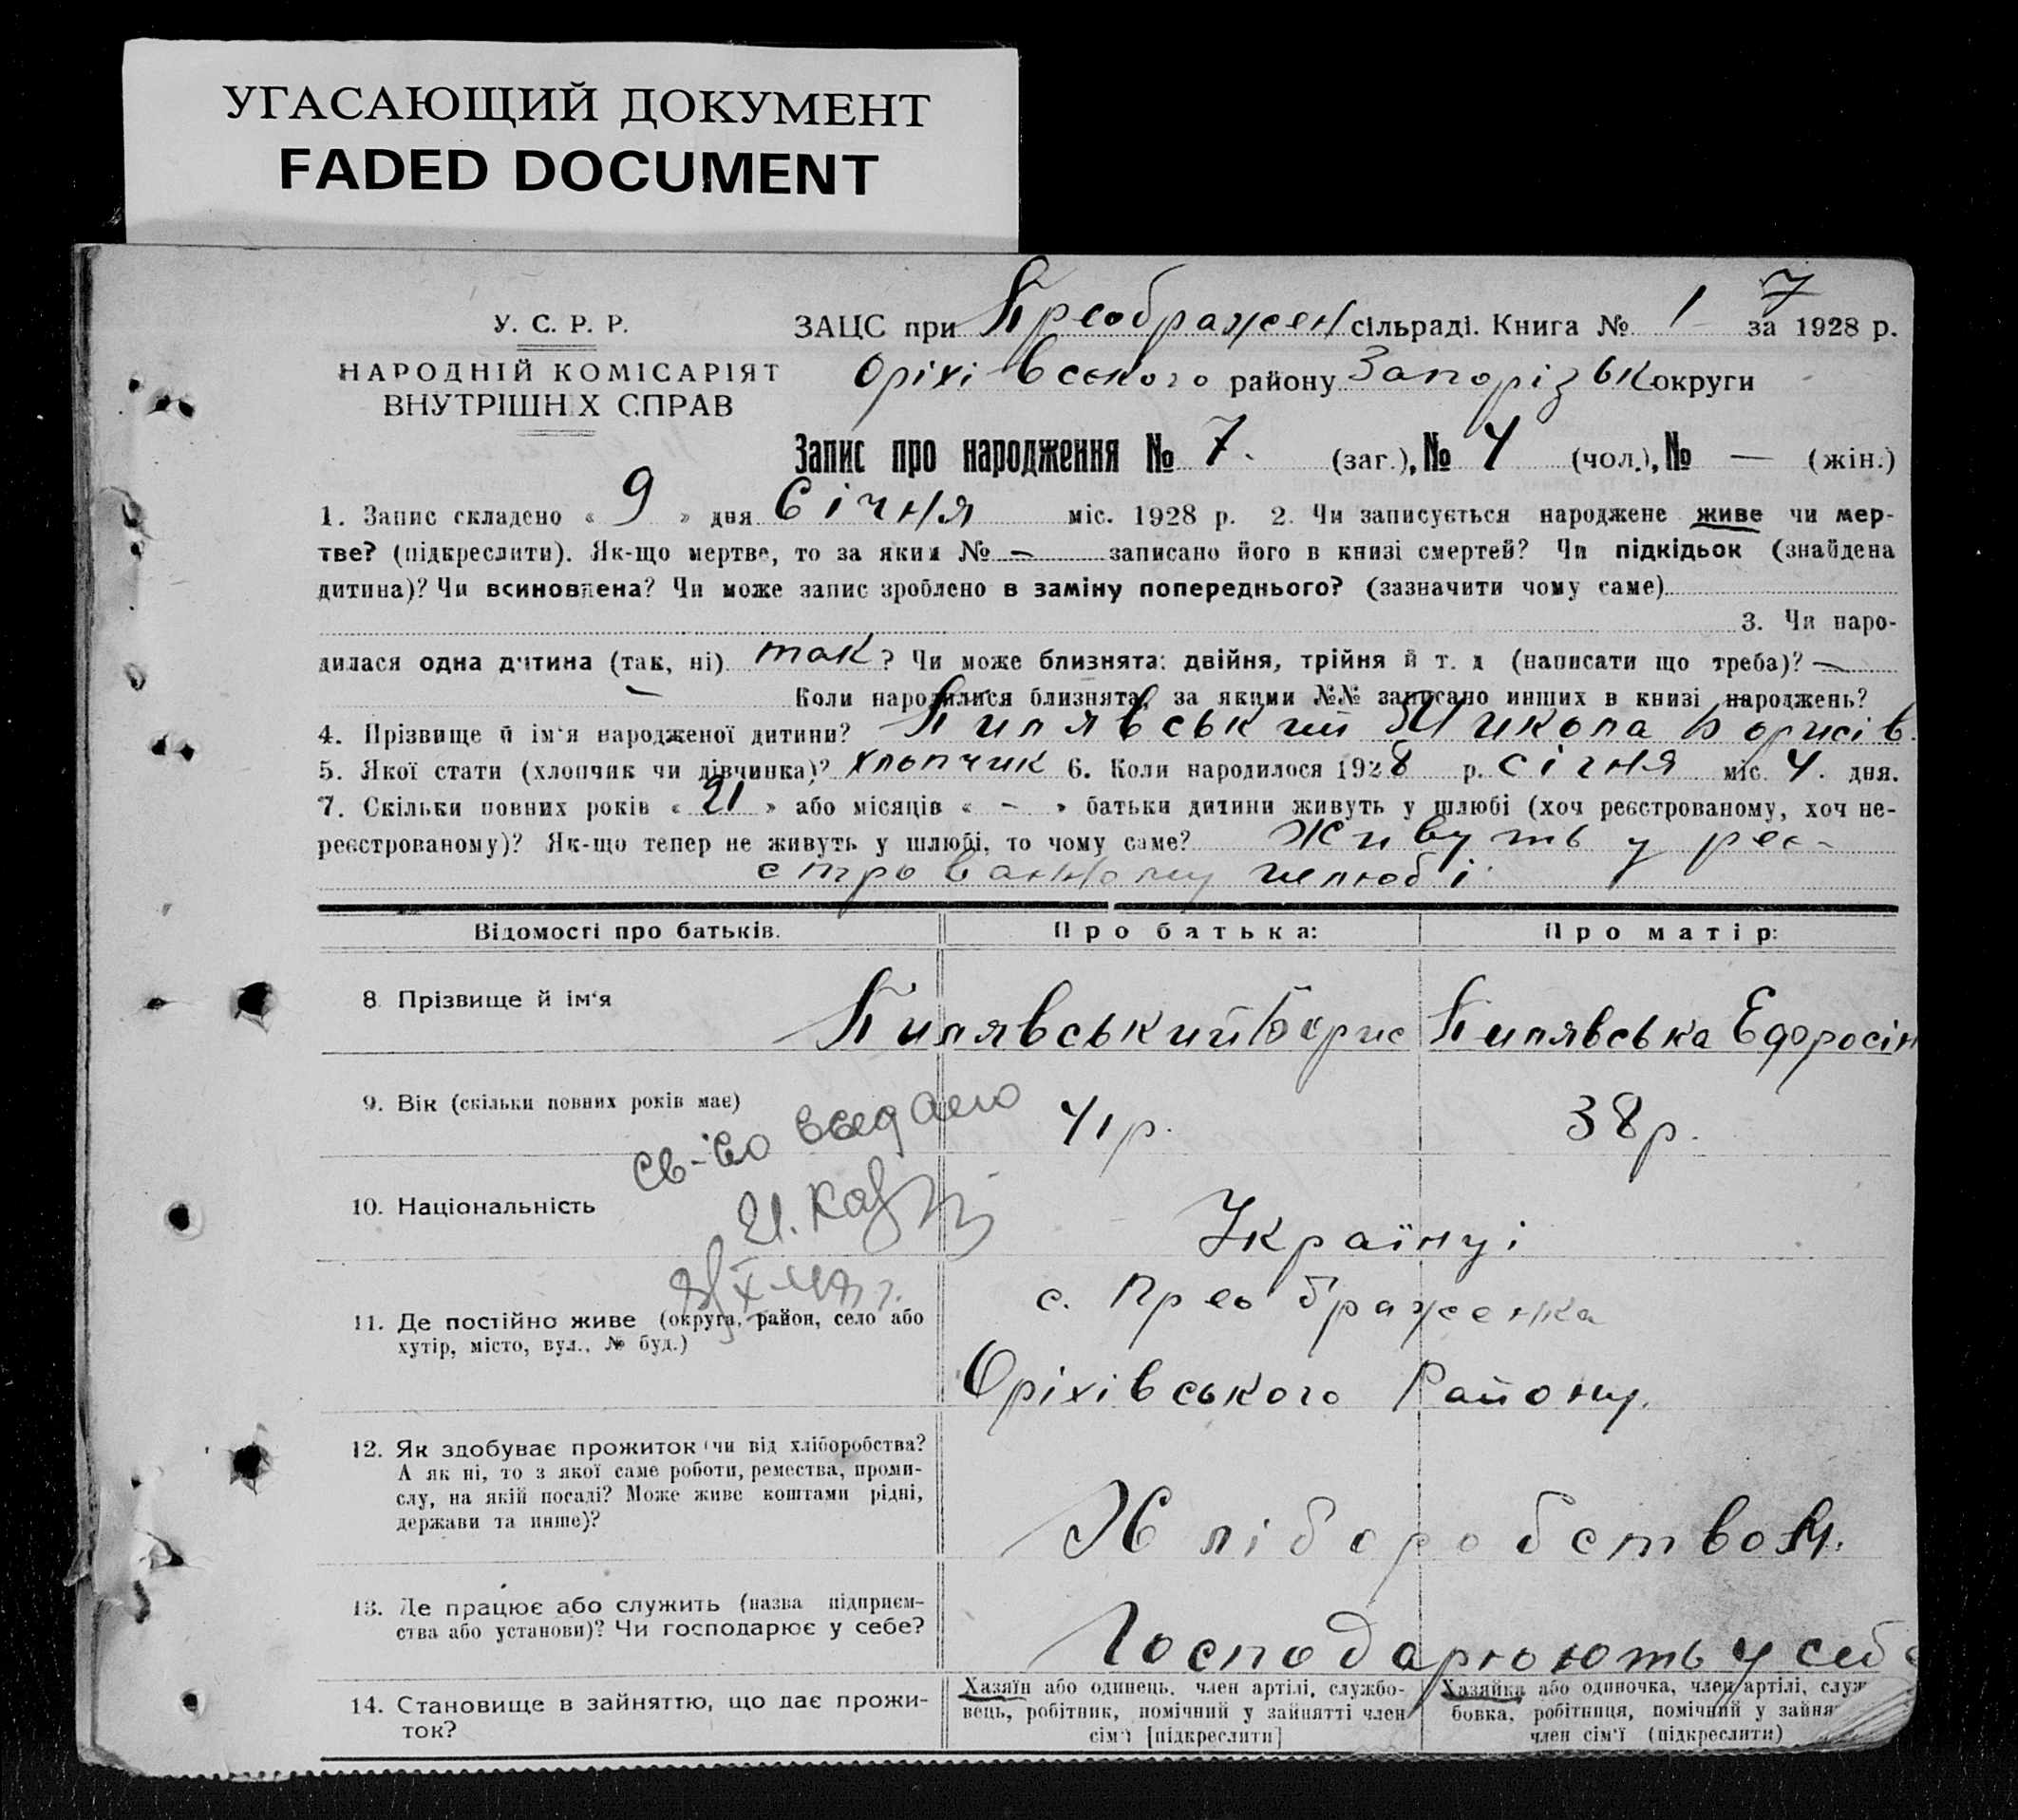 УГАСАЮЩИЙ ДОКУМЕНТ
FADED DOCUMENT
У. С. Р. Р.
НАРОДНІЙ КОМІСАРІЯТ
ВНУТРІШНІХ СПРАВ
ЗАЦС при Преображен сільраді. Книга № 1 7 за 1928 р.
Оріхівського району Запорізьк округи
Запис про народження № 7. (заг.), № 4 (чол.), № — (жін.)
1. Запис складено « 9 » дня Січня міс. 1928 р. 2. Чи записується народжене живе чи мер-
тве? (підкреслити). Як-що мертве, то за яким № — записано його в книзі смертей? Чи підкідьок (знайдена
дитина)? Чи всиновлена? Чи може запис зроблено в заміну попереднього? (зазначити чому саме)
3. Чи наро-
дилася одна дитина (так, ні) так? Чи може близнята: двійня, трійня й т. д (написати що треба)? —
— Коли народилися близнята, за якими №№ записано инших в книзі народжень?
4. Прізвище й ім'я народженої дитини? Пилявський Микола Борисів.
5. Якої стати (хлопчик чи дівчинка)? хлопчик 6. Коли народилося 1928 р. січня міс. 4. дня.
7. Скільки повних років « 21 » або місяців « - » батьки дитини живуть у шлюбі (хоч реєстрованому, хоч не-
реєстрованому)? Як-що тепер не живуть у шлюбі, то чому саме? Живуть у рее-
строванному шлюбі
Відомості про батьків. Про батька: Про матір:
8. Прізвище й ім'я Пилявський Борис Пилявська Ефросін
9. Вік (скільки повних років має) 41р. 38р.
св-во видано
10. Національність Українці
11. Де постійно живе (округа, район, село або с. Преображенка
хутір, місто, вул., № буд.) Оріхівського Району.
12. Як здобуває прожиток (чи від хліборобства?
А як ні, то з якої саме роботи, ремества, проми-
слу, на якій посаді? Може живе коштами рідні,
держави та инше)? Хліборобством.
13. Де працює або служить (назва підприєм-
ства або установи)? Чи господарює у себе? Господарюють у себе
14. Становище в зайняттю, що дає прожи-
ток?
Хазяїн або одинець, член артілі, службо-
вець, робітник, помічний у зайнятті член
сім'ї [підкреслити]
Хазяйка або одиночка, член артілі, служ
бовка, робітниця, помічний у зайня
член сім'ї (підкреслити)